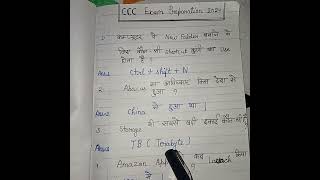 CCC Exam Preparation 2024
1. कम्प्यूटर में New Folder बनाने के
लिए कौन-सी shortcut कुंजी का use
होता है।
Ans:1 Ctrl + Shift + N
2. Abacus का आविष्कार किस देश में
हुआ था ?
Ans:2 China में हुआ था।
3. Storage की सबसे बड़ी इकाई कौन सी है
Ans:3 TB ( Terabyte )
Amazon कब Launch किया